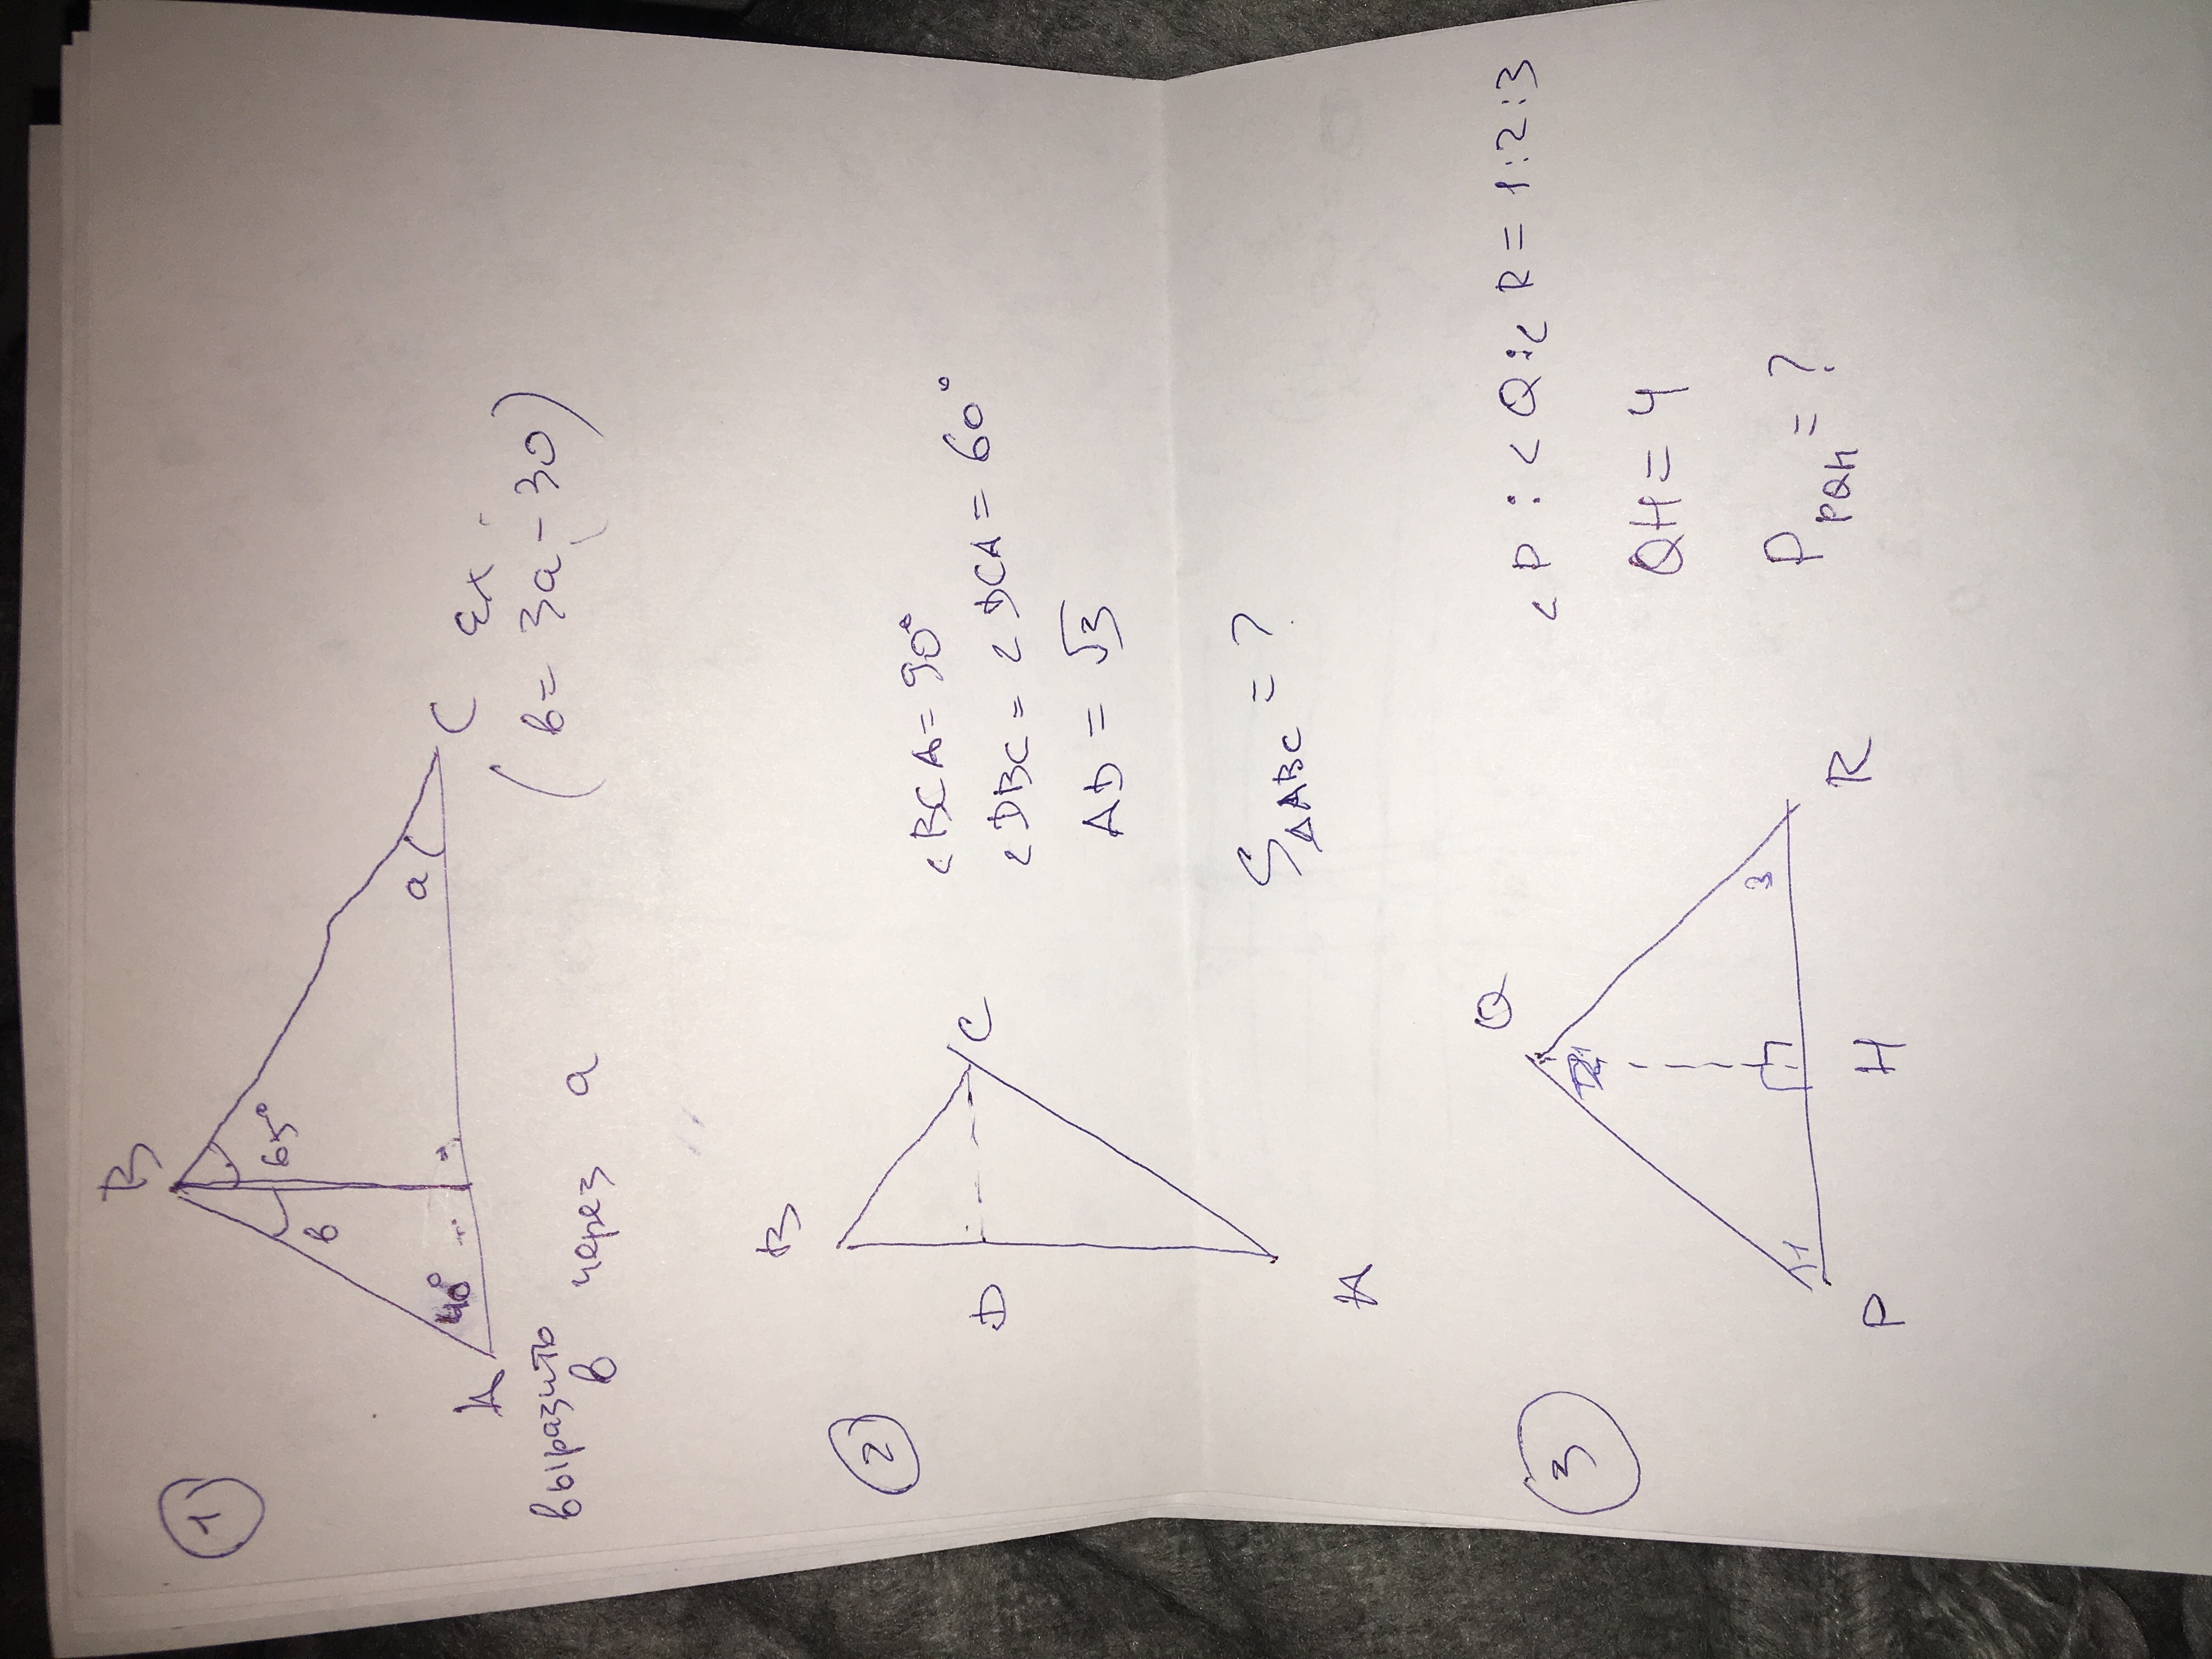 1
B
b
65°
40°
a
A
C
ex
(b = 3a - 30)
выразить
b через a
2
B
D
C
A
∠BCA = 90°
∠DBC = ∠DCA = 60°
AD = √3
S△ABC = ?
3
Q
1
3
P
H
R
∠P : ∠Q : ∠R = 1:2:3
QH = 4
P PQH = ?